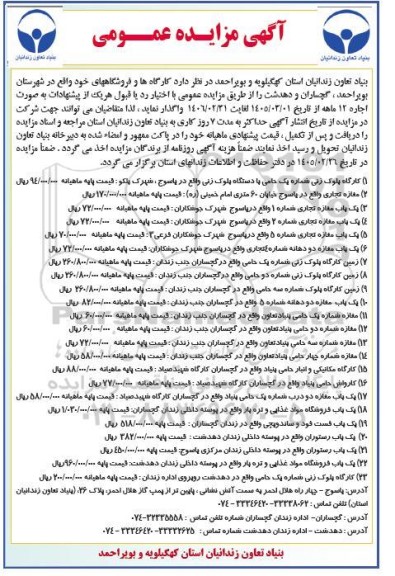 آگهی مزایده عمـــومی
بنیاد تعاون زندانیان
بنیاد تعاون زندانیان
بنیاد تعاون زندانیان استان کهگیلویه و بویراحمد در نظر دارد کارگاه ها و فروشگاههای خود واقع در شهرستان
بویراحمد ، گچساران و دهدشت را از طریق مزایده عمومی با اختیار رد یا قبول هریک از پیشنهادات به صورت
اجاره ۱۲ ماهه از تاریخ ۱۴۰۵/۰۳/۰۱ لغایت ۱۴۰۶/۰۲/۳۱ واگذار نماید ، لذا متقاضیان می توانند جهت شرکت
در مزایده از تاریخ انتشار آگهی حداکثر به مدت ۷ روز کاری به بنیاد تعاون زندانیان استان مراجعه و اسناد مزایده
را دریافت و پس از تکمیل ، قیمت پیشنهادی ماهیانه خود را در پاکت ممهور و امضاء شده به دبیرخانه بنیاد تعاون
زندانیان تحویل و رسید اخذ نمایند ضمناً هزینه آگهی روزنامه از برندگان مزایده اخذ می گردد . ضمناً مزایده
در تاریخ ۱۴۰۵/۰۲/۲۶ در دفتر حفاظت و اطلاعات زندانهای استان برگزار می گردد.
۱) کارگاه بلوک زنی شماره یک حامی با دستگاه بلوک زنی واقع در یاسوج ، شهرک بلکو : قیمت پایه ماهیانه ۹۴/۰۰۰/۰۰۰ ریال
۲) مغازه تجاری واقع در یاسوج خیابان ۶۰ متری امام خمینی (ره) : قیمت پایه ماهیانه ۱۷۰/۰۰۰/۰۰۰ ریال
۳) یک باب مغازه تجاری شماره ۱ واقع دریاسوج شهرک جوشکاران: قیمت پایه ماهیانه ۷۲/۰۰۰/۰۰۰ ریال
۴) یک باب مغازه تجاری شماره ۲ واقع دریاسوج شهرک جوشکاران: قیمت پایه ماهیانه ۷۲/۰۰۰/۰۰۰ ریال
۵) یک باب مغازه تجاری شماره ۵ واقع دریاسوج شهرک جوشکاران فرعی۳: قیمت پایه ماهیانه ۷۰/۰۰۰/۰۰۰ ریال
۶) یک باب مغازه دو دهانه شماره تجاری واقع دریاسوج شهرک جوشکاران: قیمت پایه ماهیانه ۷۲/۰۰۰/۰۰۰ ریال
۷) زمین کارگاه بلوک زنی شماره یک حامی واقع درگچساران جنب زندان : قیمت پایه ماهیانه ۲۶۰/۸۰۰/۰۰۰ ریال
۸) زمین کارگاه بلوک زنی شماره دو حامی واقع درگچساران جنب زندان : قیمت پایه ماهیانه ۲۶۰/۸۰۰/۰۰۰ ریال
۹) زمین کارگاه بلوک شماره سه حامی واقع در گچساران جنب زندان : قیمت پایه ماهیانه ۲۶۰/۸۰۰/۰۰۰ ریال
۱۰) یک باب مغازه دو دهانه شماره ۵ واقع در گچساران جنب زندان : قیمت پایه ماهیانه ۸۲/۰۰۰/۰۰۰ ریال
۱۱) مغازه شماره یک حامی بنیادتعاون واقع در گچساران جنب زندان : قیمت پایه ماهیانه ۶۰/۰۰۰/۰۰۰ ریال
۱۲) مغازه شماره دو حامی بنیادتعاون واقع در گچساران جنب زندان : قیمت پایه ماهیانه ۶۰/۰۰۰/۰۰۰ ریال
۱۳) مغازه شماره سه حامی بنیادتعاون واقع در گچساران جنب زندان : قیمت پایه ماهیانه ۷۲/۰۰۰/۰۰۰ ریال
۱۴) مغازه شماره چهار حامی بنیادتعاون واقع در گچساران جنب زندان : قیمت پایه ماهیانه ۵۸/۰۰۰/۰۰۰ ریال
۱۵) کارگاه مکانیکی و انبار حامی بنیاد واقع در گچساران کارگاه شهیدصیاد : قیمت پایه ماهیانه ۸۸/۰۰۰/۰۰۰ ریال
۱۶) کارواش حامی بنیاد واقع در گچساران کارگاه شهیدصیاد : قیمت پایه ماهیانه ۷۷/۰۰۰/۰۰۰ ریال
۱۷) یک باب مغازه دو درب شماره یک حامی بنیاد واقع در گچساران کارگاه شهیدصیاد : قیمت پایه ماهیانه ۵۸/۰۰۰/۰۰۰ ریال
۱۸) یک باب فروشگاه مواد غذایی و تره بار واقع در پوسته داخلی زندان گچساران: قیمت پایه ۱/۰۳۰/۰۰۰/۰۰۰ ریال
۱۹) یک باب فست فود و ساندویچی واقع در زندان گچساران : قیمت پایه ۵۱۸/۰۰۰/۰۰۰ ریال
۲۰) یک باب رستوران واقع در پوسته داخلی زندان دهدشت : قیمت پایه ۳۸۲/۰۰۰/۰۰۰ ریال
۲۱) یک باب رستوران واقع در پوسته داخلی زندان مرکزی یاسوج: قیمت پایه ۴۵۰/۰۰۰/۰۰۰ ریال
۲۲) یک باب فروشگاه مواد غذایی و تره بار واقع در پوسته داخلی زندان دهدشت: قیمت پایه ۹۶۰/۰۰۰/۰۰۰ ریال
۲۳) کارگاه بلوک زنی شماره یک حامی واقع در دهدشت روبروی اداره زندان : قیمت پایه ماهیانه ۲۰۰/۰۰۰/۰۰۰ ریال
آدرس: یاسوج – چهار راه هلال احمر به سمت آتش نشانی ، پایین تر از پمپ گاز هلال احمر، پلاک ۲۶، (بنیاد تعاون زندانیان
استان) تلفن تماس : ۳۳۳۳۸۰۶۲-۳۳۳۴۶۴۲۰ - ۰۷۴
آدرس : گچساران- اداره زندان گچساران شماره تلفن تماس : ۳۲۳۳۵۵۵۸-۰۷۴
آدرس : دهدشت - اداره زندان دهدشت شماره تلفن تماس : ۳۲۲۶۲۶۲۵- ۳۳۳۴۶۴۲۰ - ۰۷۴
بنیاد تعاون زندانیان استان کهگیلویه و بویراحمد